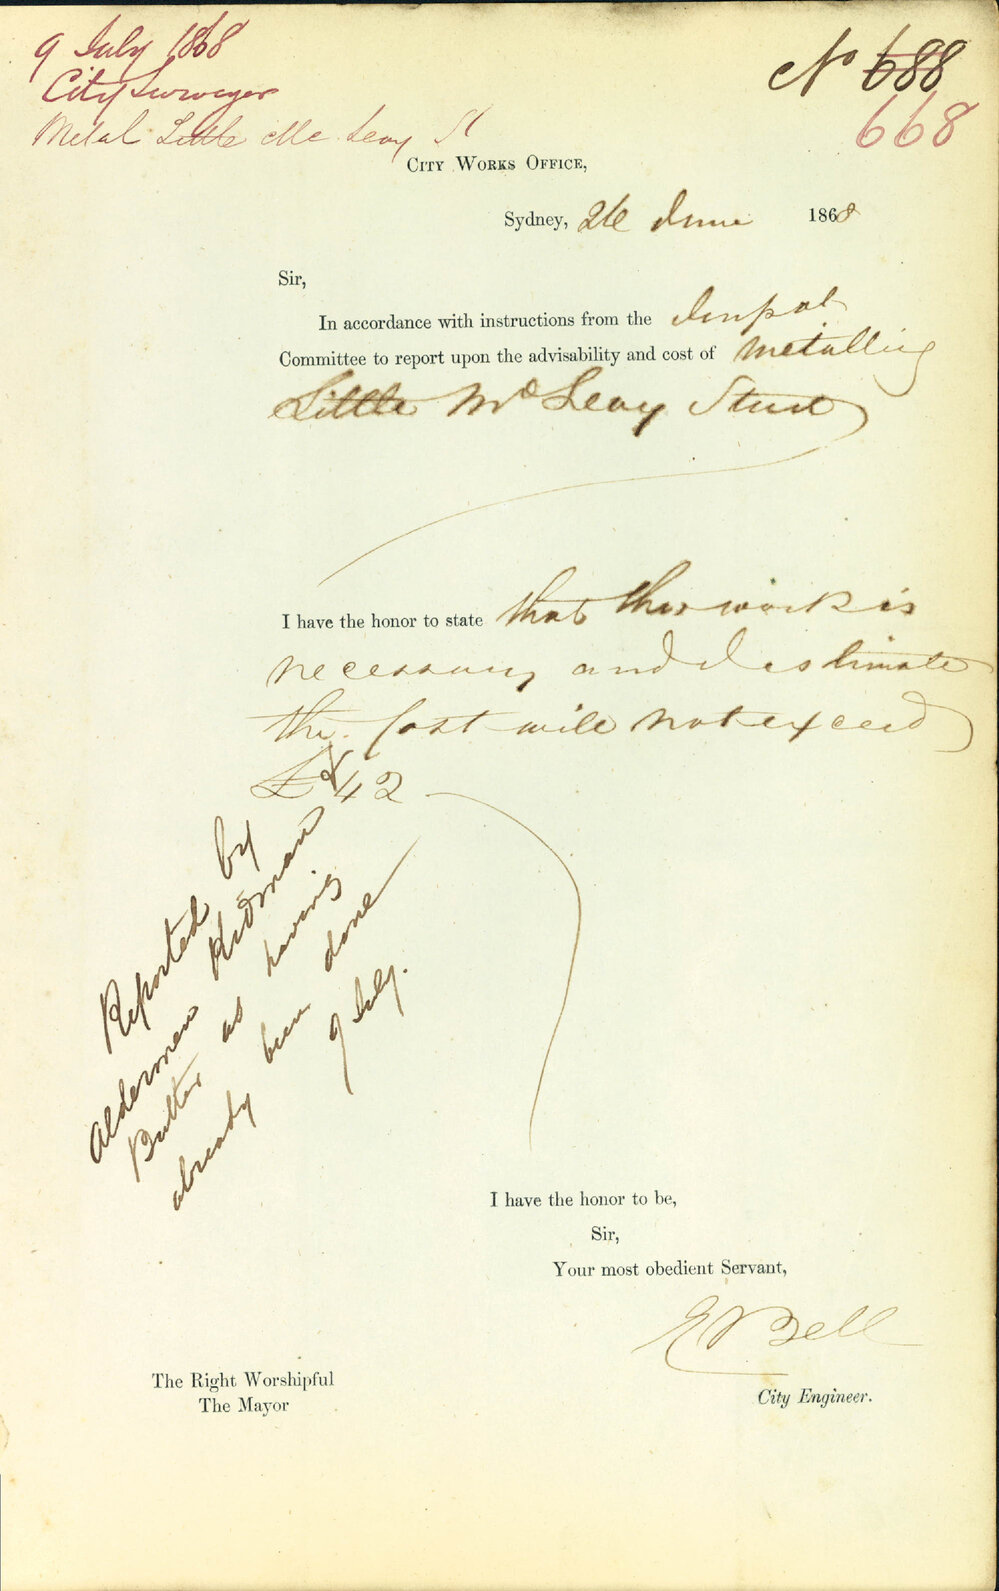 9 July 1868
City Surveyor
Metal Little McLeay St
No 688
668
CITY WORKS OFFICE,
Sydney, 26 June 1868
Sir,
In accordance with instructions from the Impt
Committee to report upon the advisability and cost of metalling
Little McLeay Street
I have the honor to state that this work is
necessary and I estimate
the Cost will not exceed
£42
Reported by
Aldermen Kidman &
Butler as having
already been done
9 July.
I have the honor to be,
Sir,
Your most obedient Servant,
E Bell
City Engineer.
The Right Worshipful
The Mayor